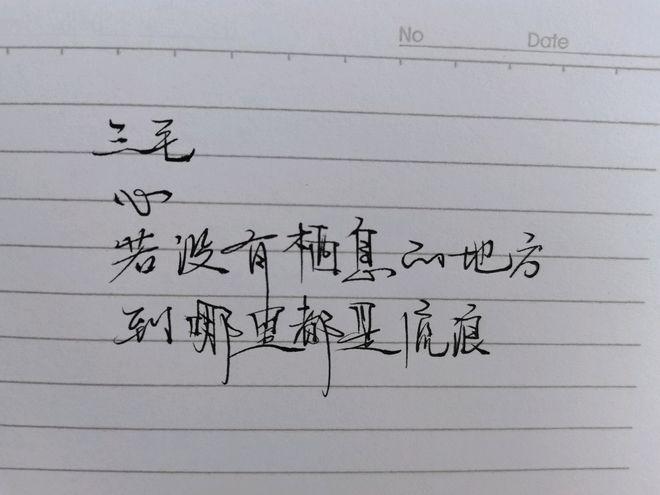 No Date
三毛
心
若没有栖息的地方
到哪里都是流浪